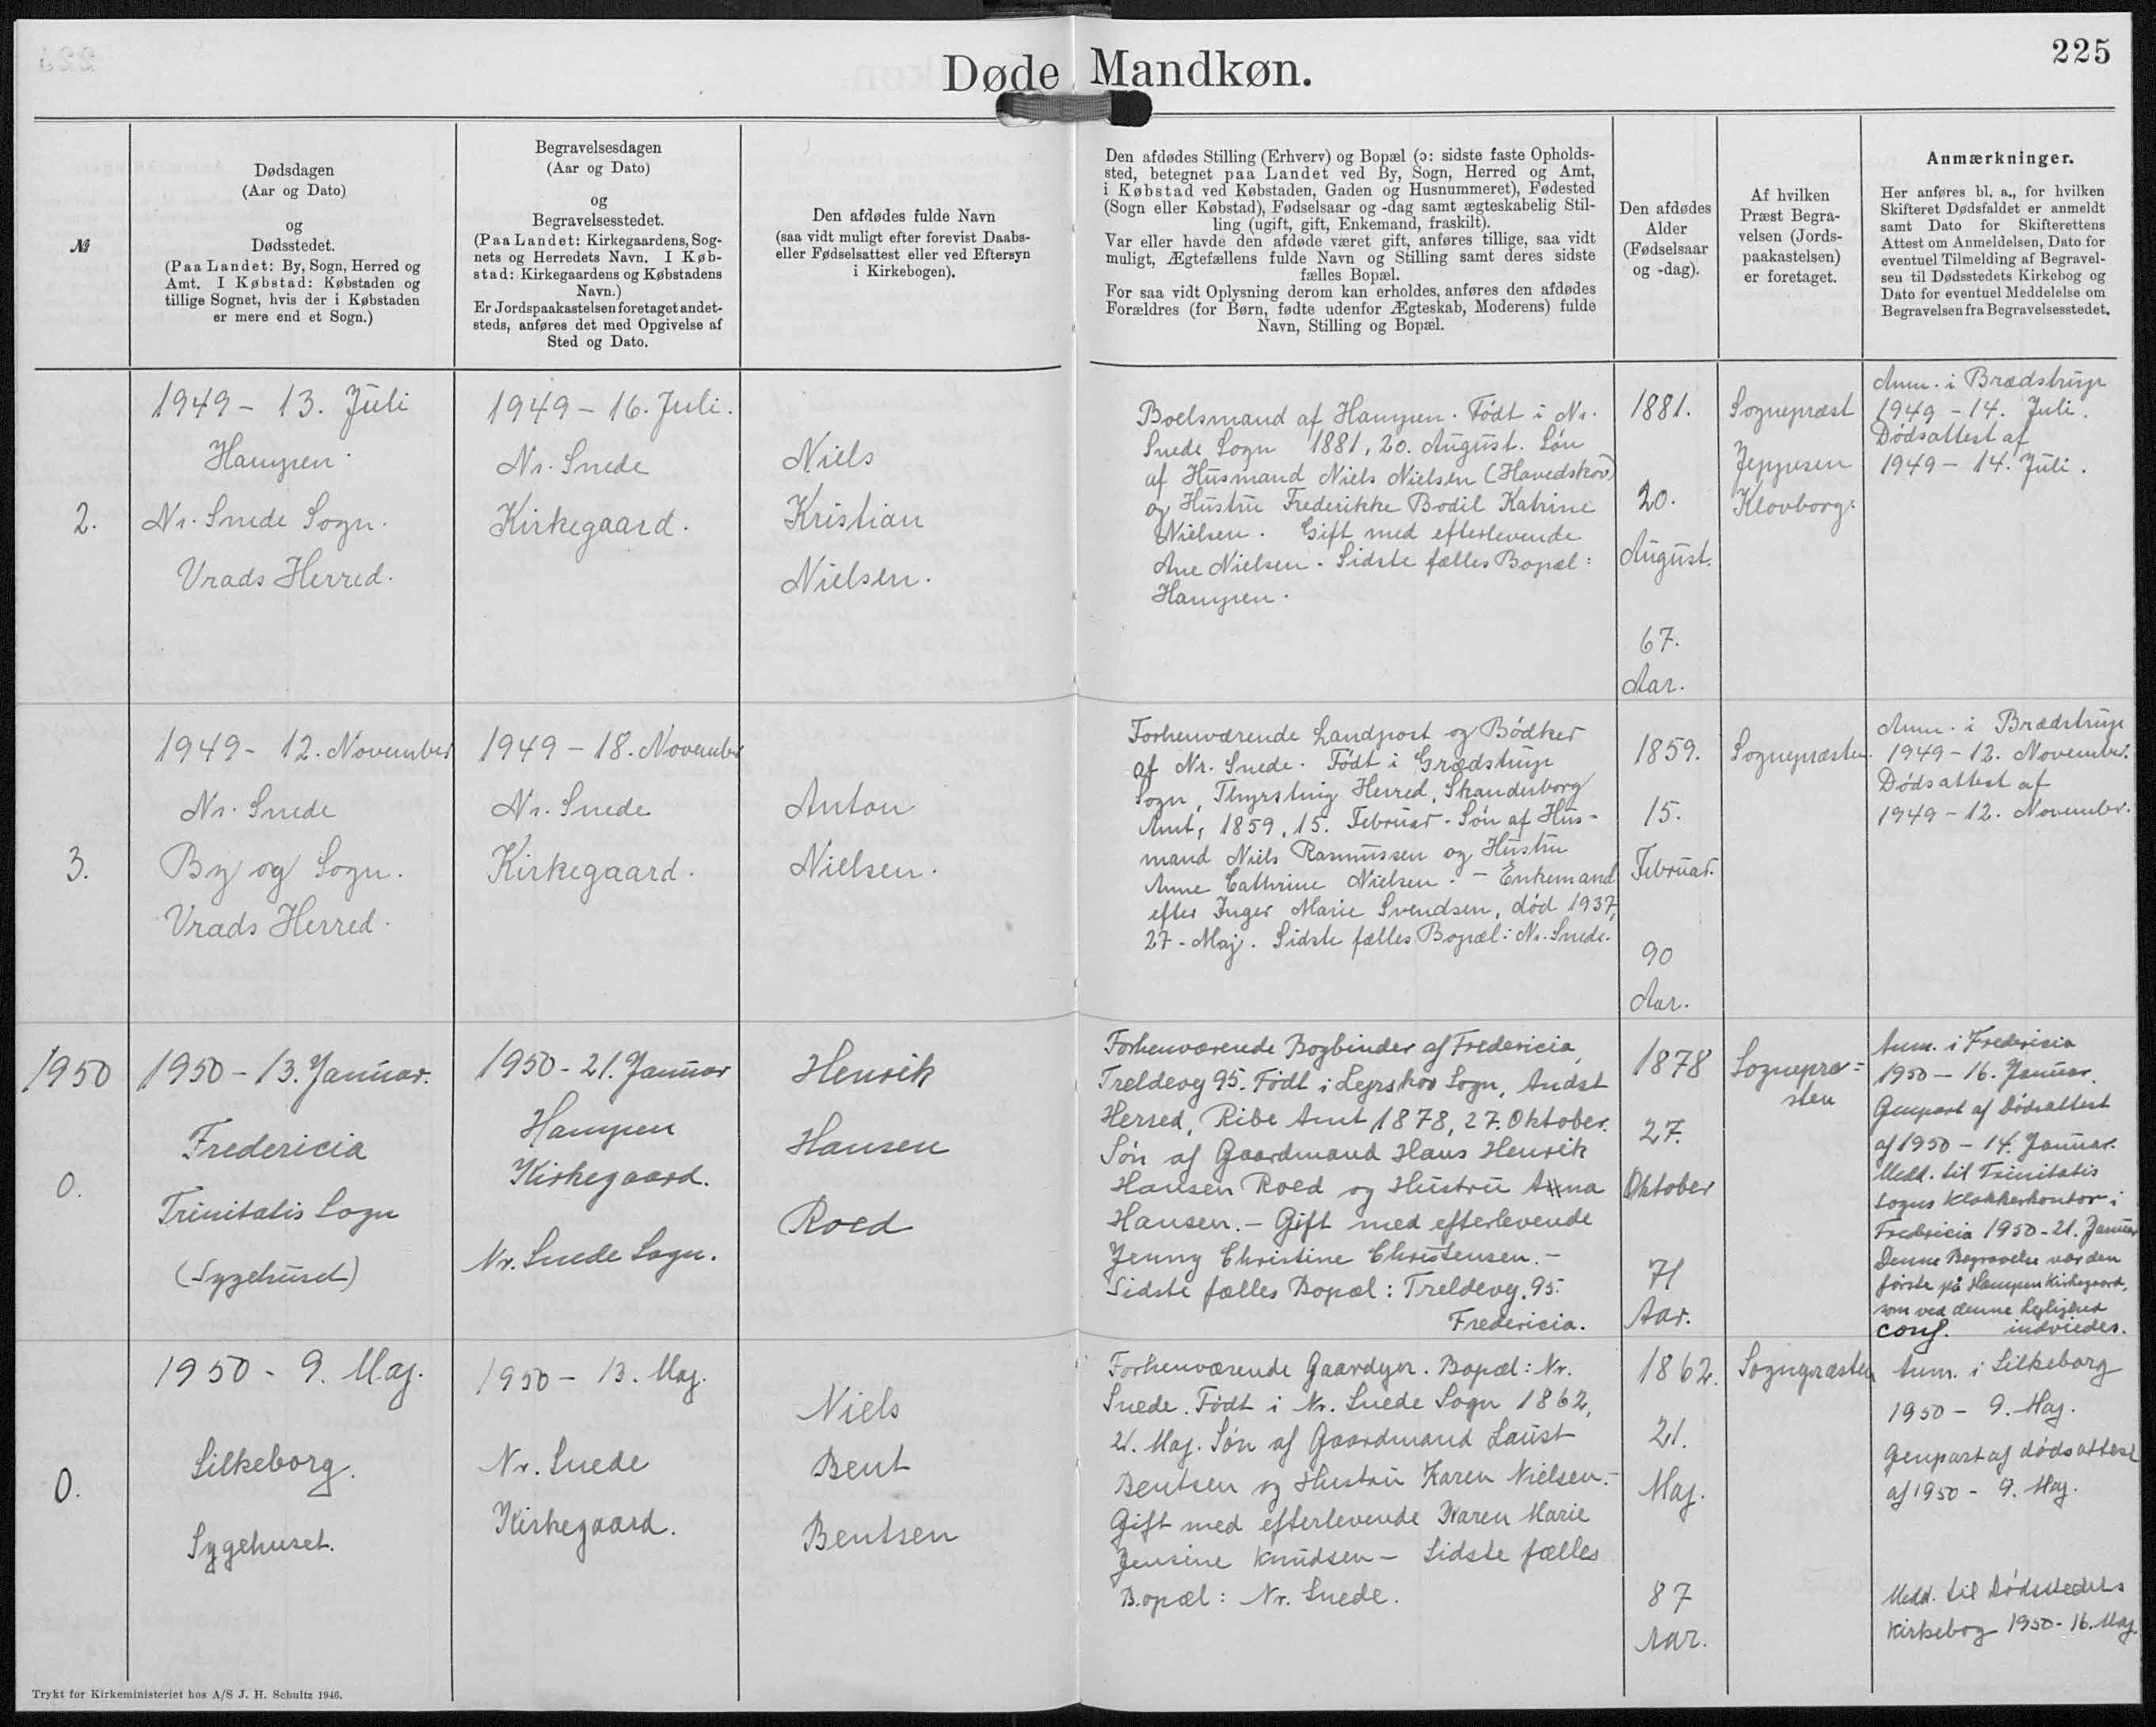 Døde Mandkøn.
225
№
Dødsdagen
(Aar og Dato)
og
Dødsstedet.
(Paa Landet: By, Sogn, Herred og
Amt. I Købstad: Købstaden og
tillige Sognet, hvis der i Købstaden
er mere end et Sogn.)
Begravelsesdagen
(Aar og Dato)
og
Begravelsesstedet.
(Paa Landet: Kirkegaardens, Sog-
nets og Herredets Navn. I Køb-
stad: Kirkegaardens og Købstadens
Navn.)
Er Jordspaakastelsen foretaget andet-
steds, anføres det med Opgivelse af
Sted og Dato.
Den afdødes fulde Navn
(saa vidt muligt efter forevist Daabs-
eller Fødselsattest eller ved Eftersyn
i Kirkebogen).
Den afdødes Stilling (Erhverv) og Bopæl (ɔ: sidste faste Opholds-
sted, betegnet paa Landet ved By, Sogn, Herred og Amt,
i Købstad ved Købstaden, Gaden og Husnummeret), Fødested
(Sogn eller Købstad), Fødselsaar og -dag samt ægteskabelig Stil-
ling (ugift, gift, Enkemand, fraskilt).
Var eller havde den afdøde været gift, anføres tillige, saa vidt
muligt, Ægtefællens fulde Navn og Stilling samt deres sidste
fælles Bopæl.
For saa vidt Oplysning derom kan erholdes, anføres den afdødes
Forældres (for Børn, fødte udenfor Ægteskab, Moderens) fulde
Navn, Stilling og Bopæl.
Den afdødes
Alder
(Fødselsaar
og -dag).
Af hvilken
Præst Begra-
velsen (Jords-
paakastelsen)
er foretaget.
Anmærkninger.
Her anføres bl. a., for hvilken
Skifteret Dødsfaldet er anmeldt
samt Dato for Skifterettens
Attest om Anmeldelsen, Dato for
eventuel Tilmelding af Begravel-
sen til Dødsstedets Kirkebog og
Dato for eventuel Meddelelse om
Begravelsen fra Begravelsesstedet.
2.
1949 - 13. Juli
Hampen.
Nr. Snede Sogn.
Vrads Herred.
1949 - 16. Juli.
Nr. Snede
Kirkegaard.
Niels
Kristian
Nielsen.
Boelsmand af Hampen. Født i Nr.
Snede Sogn 1881, 20. August. Søn
af Husmand Niels Nielsen (Havedskov)
og Hustru Frederikke Bodil Katrine
Nielsen. Gift med efterlevende
Ane Nielsen - Sidste fælles Bopæl:
Hampen.
1881.
20.
August.
67.
Aar.
Sognepræst
Jeppesen
Klovborg.
Anm. i Brædstrup
1949 - 14. Juli.
Dødsattest af
1949 - 14. Juli.
3.
1949 - 12. November
Nr. Snede
By og Sogn.
Vrads Herred.
1949 - 18. November
Nr. Snede
Kirkegaard.
Anton
Nielsen.
Forhenværende Landpost og Bødker
af Nr. Snede. Født i Grædstrup
Sogn, Thyrsting Herred, Skanderborg
Amt, 1859, 15. Februar - Søn af Hus-
mand Niels Rasmussen og Hustru
Anne Cathrine Nielsen. - Enkemand
efter Inger Marie Svendsen, død 1937,
27 - Maj. Sidste fælles Bopæl: Nr. Snede.
1859.
15.
Februar.
90
Aar.
Sognepræsten.
Anm. i Brædstrup
1949 - 12. November.
Dødsattest af
1949 - 12. November.
1950
0.
1950 - 13. Januar.
Fredericia
Trinitatis Sogn
(Sygehuset)
1950 - 21. Januar
Hampen
Kirkegaard.
Nr. Snede Sogn.
Henrik
Hansen
Roed
Forhenværende Bogbinder af Fredericia,
Treldevej 95. Født i Lejrskov Sogn, Andst
Herred, Ribe Amt 1878, 27. Oktober.
Søn af Gaardmand Hans Henrik
Hansen Roed og Hustru Anna
Hansen. - Gift med efterlevende
Jenny Christine Christensen. -
Sidste fælles Bopæl: Treldevej 95.
Fredericia.
1878
27.
Oktober
71
Aar.
Sognepræ=
sten
Anm. i Fredericia
1950 - 16. Januar.
Genpart af Dødsattest
af 1950 - 14. Januar.
Medd. til Trinitatis
Sogns Klokkerkontor i
Fredericia 1950 - 21. Januar
Denne Begravelse var den
første på Hampen Kirkegaard,
som ved denne Lejlighed
conf. indviedes.
0.
1950 - 9. Maj.
Silkeborg.
Sygehuset.
1950 - 13. Maj.
Nr. Snede
Kirkegaard.
Niels
Bent
Bentsen
Forhenværende Gaardejer. Bopæl: Nr.
Snede. Født i Nr. Snede Sogn 1862,
21. Maj. Søn af Gaardmand Laust
Bentsen og Hustru Karen Nielsen. -
Gift med efterlevende Karen Marie
Jensine Knudsen - Sidste fælles
Bopæl: Nr. Snede.
1862.
21.
Maj.
87
Aar.
Sognpræsten
Anm. i Silkeborg
1950 - 9. Maj.
Genpart af dødsattest
af 1950 - 9. Maj.
Medd. til Dødsstedets
Kirkebog 1950 - 16. Maj.
Trykt for Kirkeministeriet hos A/S J. H. Schultz 1946.